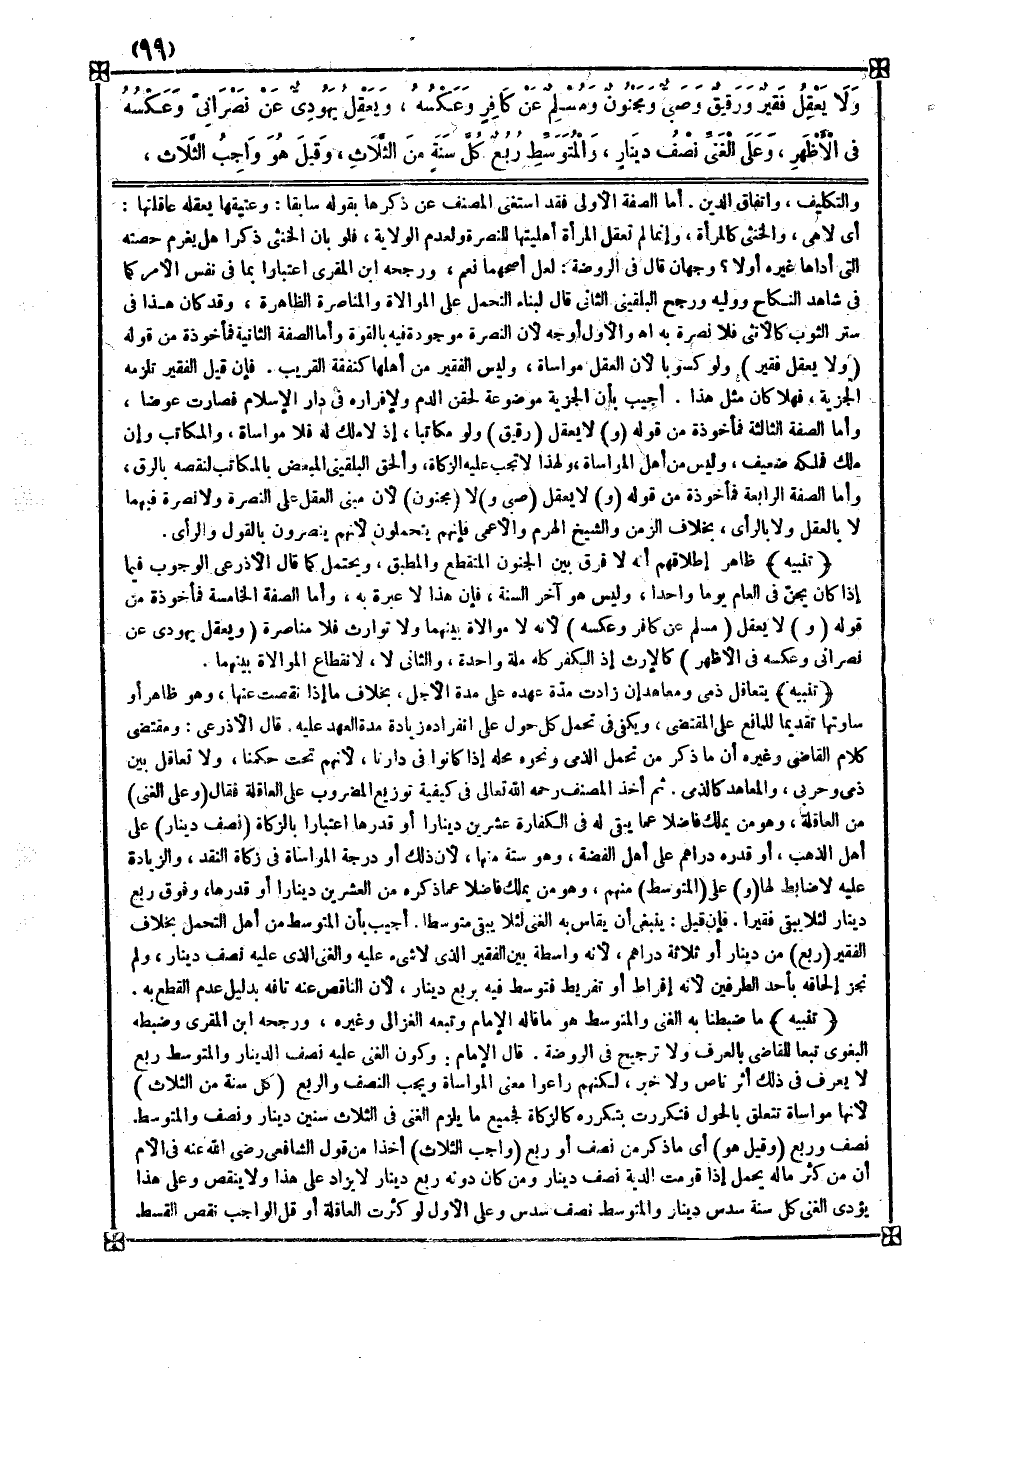 (٩٩)
وَلَا يَعْقِلُ فَقِيرٌ وَرَقِيقٌ وَصَبِيٌّ وَمَجْنُونٌ وَمُسْلِمٌ عَنْ كَافِرٍ وَعَكْسُهُ ، وَيَعْقِلُ يَهُودِيٌّ عَنْ نَصْرَانِيٍّ وَعَكْسُهُ
فِى الْأَظْهَرِ ، وَعَلَى الْغَنِيِّ نِصْفُ دِينَارٍ ، وَالْمُتَوَسِّطِ رُبُعٌ كُلَّ سَنَةٍ مِنَ الثَّلَاثِ ، وَقِيلَ هُوَ وَاجِبُ الثَّلَاثِ ،
والتكليف ، واتفاق الدين . أما الصفة الأولى فقد استغنى المصنف عن ذكرها بقوله سابقا : وعتيقها يعقله عاقلتها :
أى لاهى ، والخنثى كالمرأة ، وإنما لم تعقل المرأة أهليتها للنصرة ولعدم الولاية ، فلو بان الخنثى ذكرا هل يغرم حصته
التى أداها غيره أولا ؟ وجهان قال فى الروضة : لعل أصحهما نعم ، ورجحه ابن المقرى اعتبارا بما فى نفس الأمر كما
فى شاهد النكاح ووليه ورجح البلقينى الثانى قال لبناء التحمل على الموالاة والمناصرة الظاهرة ، وقد كان هذا فى
ستر الثوب كالأنثى فلا نصرة به اه والأول أوجه لأن النصرة موجودة فيه بالقوة وأما الصفة الثانية فمأخوذة من قوله
(ولا يعقل فقير) ولو كسوبا لأن العقل مواساة ، وليس الفقير من أهلها كنفقة القريب . فإن قيل الفقير تلزمه
الجزية ، فهلا كان مثل هذا . أجيب بأن الجزية موضوعة لحقن الدم ولإقراره فى دار الإسلام فصارت عوضا ،
وأما الصفة الثالثة فمأخوذة من قوله (و) لايعقل (رقيق) ولو مكاتبا ، إذ لاملك له فلا مواساة ، والمكاتب وإن
ملك فملكه ضعيف ، وليس من أهل المواساة ، ولهذا لاتجب عليه الزكاة، وألحق البلقينى المبعض بالمكاتب لنقصه بالرق ،
وأما الصفة الرابعة فمأخوذة من قوله (و) لايعقل (صبى و) لا (مجنون) لأن مبنى العقل على النصرة ولا نصرة فيهما
لا بالعقل ولا بالرأى ، بخلاف الزمن والشيخ الهرم والأعمى فإنهم يتحملون لأنهم ينصرون بالقول والرأى .
﴿ تنبيه ﴾ ظاهر إطلاقهم أنه لا فرق بين الجنون المتقطع والمطبق ، ويحتمل كما قال الأذرعى الوجوب فيما
إذا كان يجنّ فى العام يوما واحدا ، وليس هو آخر السنة ، فإن هذا لا عبرة به ، وأما الصفة الخامسة فمأخوذة من
قوله ( و ) لا يعقل ( مسلم عن كافر وعكسه ) لأنه لا موالاة بينهما ولا توارث فلا مناصرة ( ويعقل يهودى عن
نصرانى وعكسه فى الأظهر ) كالإرث إذ الكفر كله ملة واحدة ، والثانى لا ، لانقطاع الموالاة بينهما .
﴿ تنبيه ﴾ يتعاقل ذمى ومعاهد إن زادت مدّة عهده على مدة الأجل ، بخلاف ما إذا نقصت عنها ، وهو ظاهر أو
ساوتها تقديما للمانع على المقتضى ، ويكفى فى تحمل كل حول على انفراده زيادة مدة العهد عليه . قال الأذرعى : ومقتضى
كلام القاضى وغيره أن ما ذكر من تحمل الذمى ونحوه محله إذا كانوا فى دارنا ، لأنهم تحت حكمنا ، ولا تعاقل بين
ذمى وحربى ، والمعاهد كالذمى . ثم أخذ المصنف رحمه الله تعالى فى كيفية توزيع المضروب على العاقلة فقال (وعلى الغنى)
من العاقلة ، وهو من يملك فاضلا عما يبقى له فى الكفارة عشرين دينارا أو قدرها اعتبارا بالزكاة (نصف دينار) على
أهل الذهب ، أو قدره دراهم على أهل الفضة ، وهو ستة منها ، لأن ذلك أو درجة المواساة فى زكاة النقد ، والزيادة
عليه لا ضابط لها (و) على (المتوسط) منهم ، وهو من يملك فاضلا عما ذكره من العشرين دينارا أو قدرها، وفوق ربع
دينار لئلا يبقى فقيرا . فإن قيل : ينبغى أن يقاس به الغنى لئلا يبقى متوسطا. أجيب بأن المتوسط من أهل التحمل بخلاف
الفقير (ربع) من دينار أو ثلاثة دراهم ، لأنه واسطة بين الفقير الذى لا شىء عليه والغنى الذى عليه نصف دينار ، ولم
نجز إلحاقه بأحد الطرفين لأنه إفراط أو تفريط فتوسط فيه بربع دينار ، لأن الناقص عنه تافه بدليل عدم القطع به .
﴿ تنبيه ﴾ ما ضبطنا به الغنى والمتوسط هو ما قاله الإمام وتبعه الغزالى وغيره ، ورجحه ابن المقرى وضبطه
البغوى تبعا للقاضى بالعرف ولا ترجيح فى الروضة . قال الإمام : وكون الغنى عليه نصف الدينار والمتوسط ربع
لا يعرف فى ذلك أثر ناص ولا خبر ، لكنهم راعوا معنى المواساة ويجب النصف والربع ( كل سنة من الثلاث )
لأنها مواساة تتعلق بالحول فتكررت بتكرره كالزكاة فجميع ما يلزم الغنى فى الثلاث سنين دينار ونصف والمتوسط.
نصف وربع (وقيل هو) أى ما ذكر من نصف أو ربع (واجب الثلاث) أخذا من قول الشافعى رضى الله عنه فى الأم
أن من كثر ماله يحمل إذا قومت الدية نصف دينار ومن كان دونه ربع دينار لا يزاد على هذا ولا ينقص وعلى هذا
يؤدى الغنى كل سنة سدس دينار والمتوسط نصف سدس وعلى الأول لو كثرت العاقلة أو قل الواجب نقص القسط